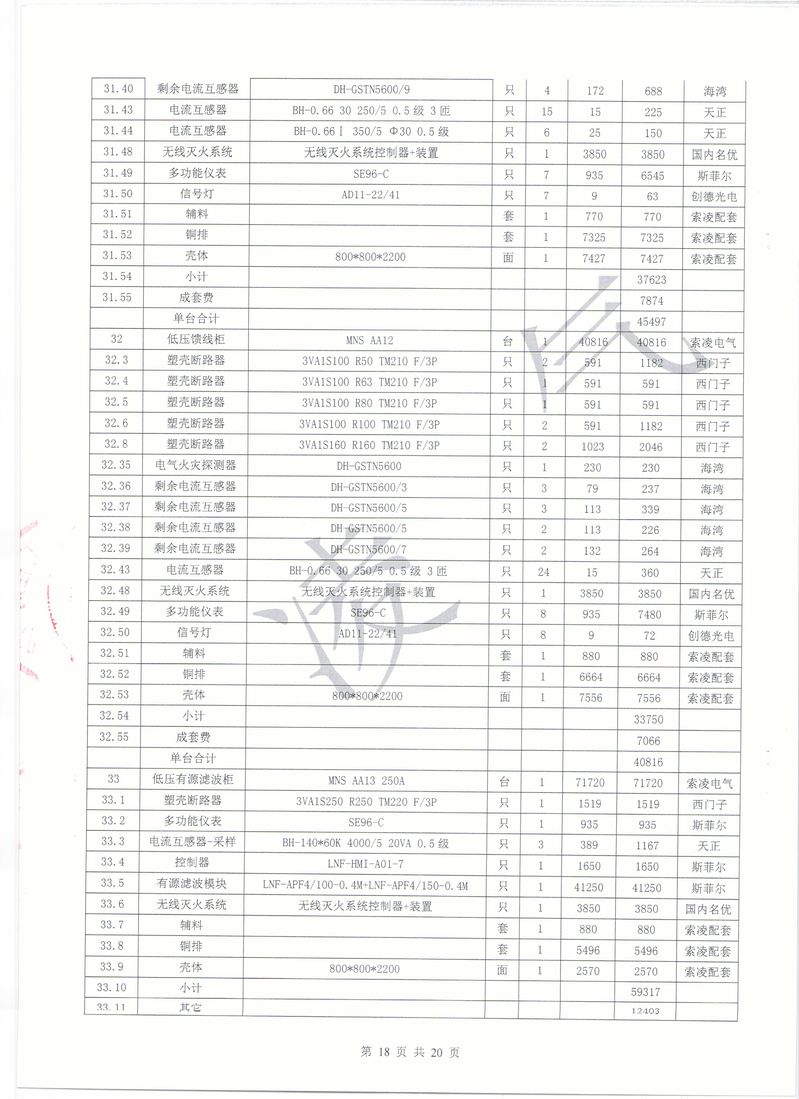 31.40 剩余电流互感器 DH-GSTN5600/9 只 4 172 688 海湾
31.43 电流互感器 BH-0.66 30 250/5 0.5级 3匝 只 15 15 225 天正
31.44 电流互感器 BH-0.66Ⅰ 350/5 Φ30 0.5级 只 6 25 150 天正
31.48 无线灭火系统 无线灭火系统控制器+装置 只 1 3850 3850 国内名优
31.49 多功能仪表 SE96-C 只 7 935 6545 斯菲尔
31.50 信号灯 AD11-22/41 只 7 9 63 创德光电
31.51 辅料 套 1 770 770 索凌配套
31.52 铜排 套 1 7325 7325 索凌配套
31.53 壳体 800*800*2200 面 1 7427 7427 索凌配套
31.54 小计 37623
31.55 成套费 7874
单台合计 45497
32 低压馈线柜 MNS AA12 台 1 40816 40816 索凌电气
32.3 塑壳断路器 3VA1S100 R50 TM210 F/3P 只 2 591 1182 西门子
32.4 塑壳断路器 3VA1S100 R63 TM210 F/3P 只 1 591 591 西门子
32.5 塑壳断路器 3VA1S100 R80 TM210 F/3P 只 1 591 591 西门子
32.6 塑壳断路器 3VA1S100 R100 TM210 F/3P 只 2 591 1182 西门子
32.8 塑壳断路器 3VA1S160 R160 TM210 F/3P 只 2 1023 2046 西门子
32.35 电气火灾探测器 DH-GSTN5600 只 1 230 230 海湾
32.36 剩余电流互感器 DH-GSTN5600/3 只 3 79 237 海湾
32.37 剩余电流互感器 DH-GSTN5600/5 只 3 113 339 海湾
32.38 剩余电流互感器 DH-GSTN5600/5 只 2 113 226 海湾
32.39 剩余电流互感器 DH-GSTN5600/7 只 2 132 264 海湾
32.43 电流互感器 BH-0.66 30 250/5 0.5级 3匝 只 24 15 360 天正
32.48 无线灭火系统 无线灭火系统控制器+装置 只 1 3850 3850 国内名优
32.49 多功能仪表 SE96-C 只 8 935 7480 斯菲尔
32.50 信号灯 AD11-22/41 只 8 9 72 创德光电
32.51 辅料 套 1 880 880 索凌配套
32.52 铜排 套 1 6664 6664 索凌配套
32.53 壳体 800*800*2200 面 1 7556 7556 索凌配套
32.54 小计 33750
32.55 成套费 7066
单台合计 40816
33 低压有源滤波柜 MNS AA13 250A 台 1 71720 71720 索凌电气
33.1 塑壳断路器 3VA1S250 R250 TM220 F/3P 只 1 1519 1519 西门子
33.2 多功能仪表 SE96-C 只 1 935 935 斯菲尔
33.3 电流互感器-采样 BH-140*60K 4000/5 20VA 0.5级 只 3 389 1167 天正
33.4 控制器 LNF-HMI-A01-7 只 1 1650 1650 斯菲尔
33.5 有源滤波模块 LNF-APF4/100-0.4M+LNF-APF4/150-0.4M 只 1 41250 41250 斯菲尔
33.6 无线灭火系统 无线灭火系统控制器+装置 只 1 3850 3850 国内名优
33.7 辅料 套 1 880 880 索凌配套
33.8 铜排 套 1 5496 5496 索凌配套
33.9 壳体 800*800*2200 面 1 2570 2570 索凌配套
33.10 小计 59317
33.11 其它 12403
第 18 页 共 20 页